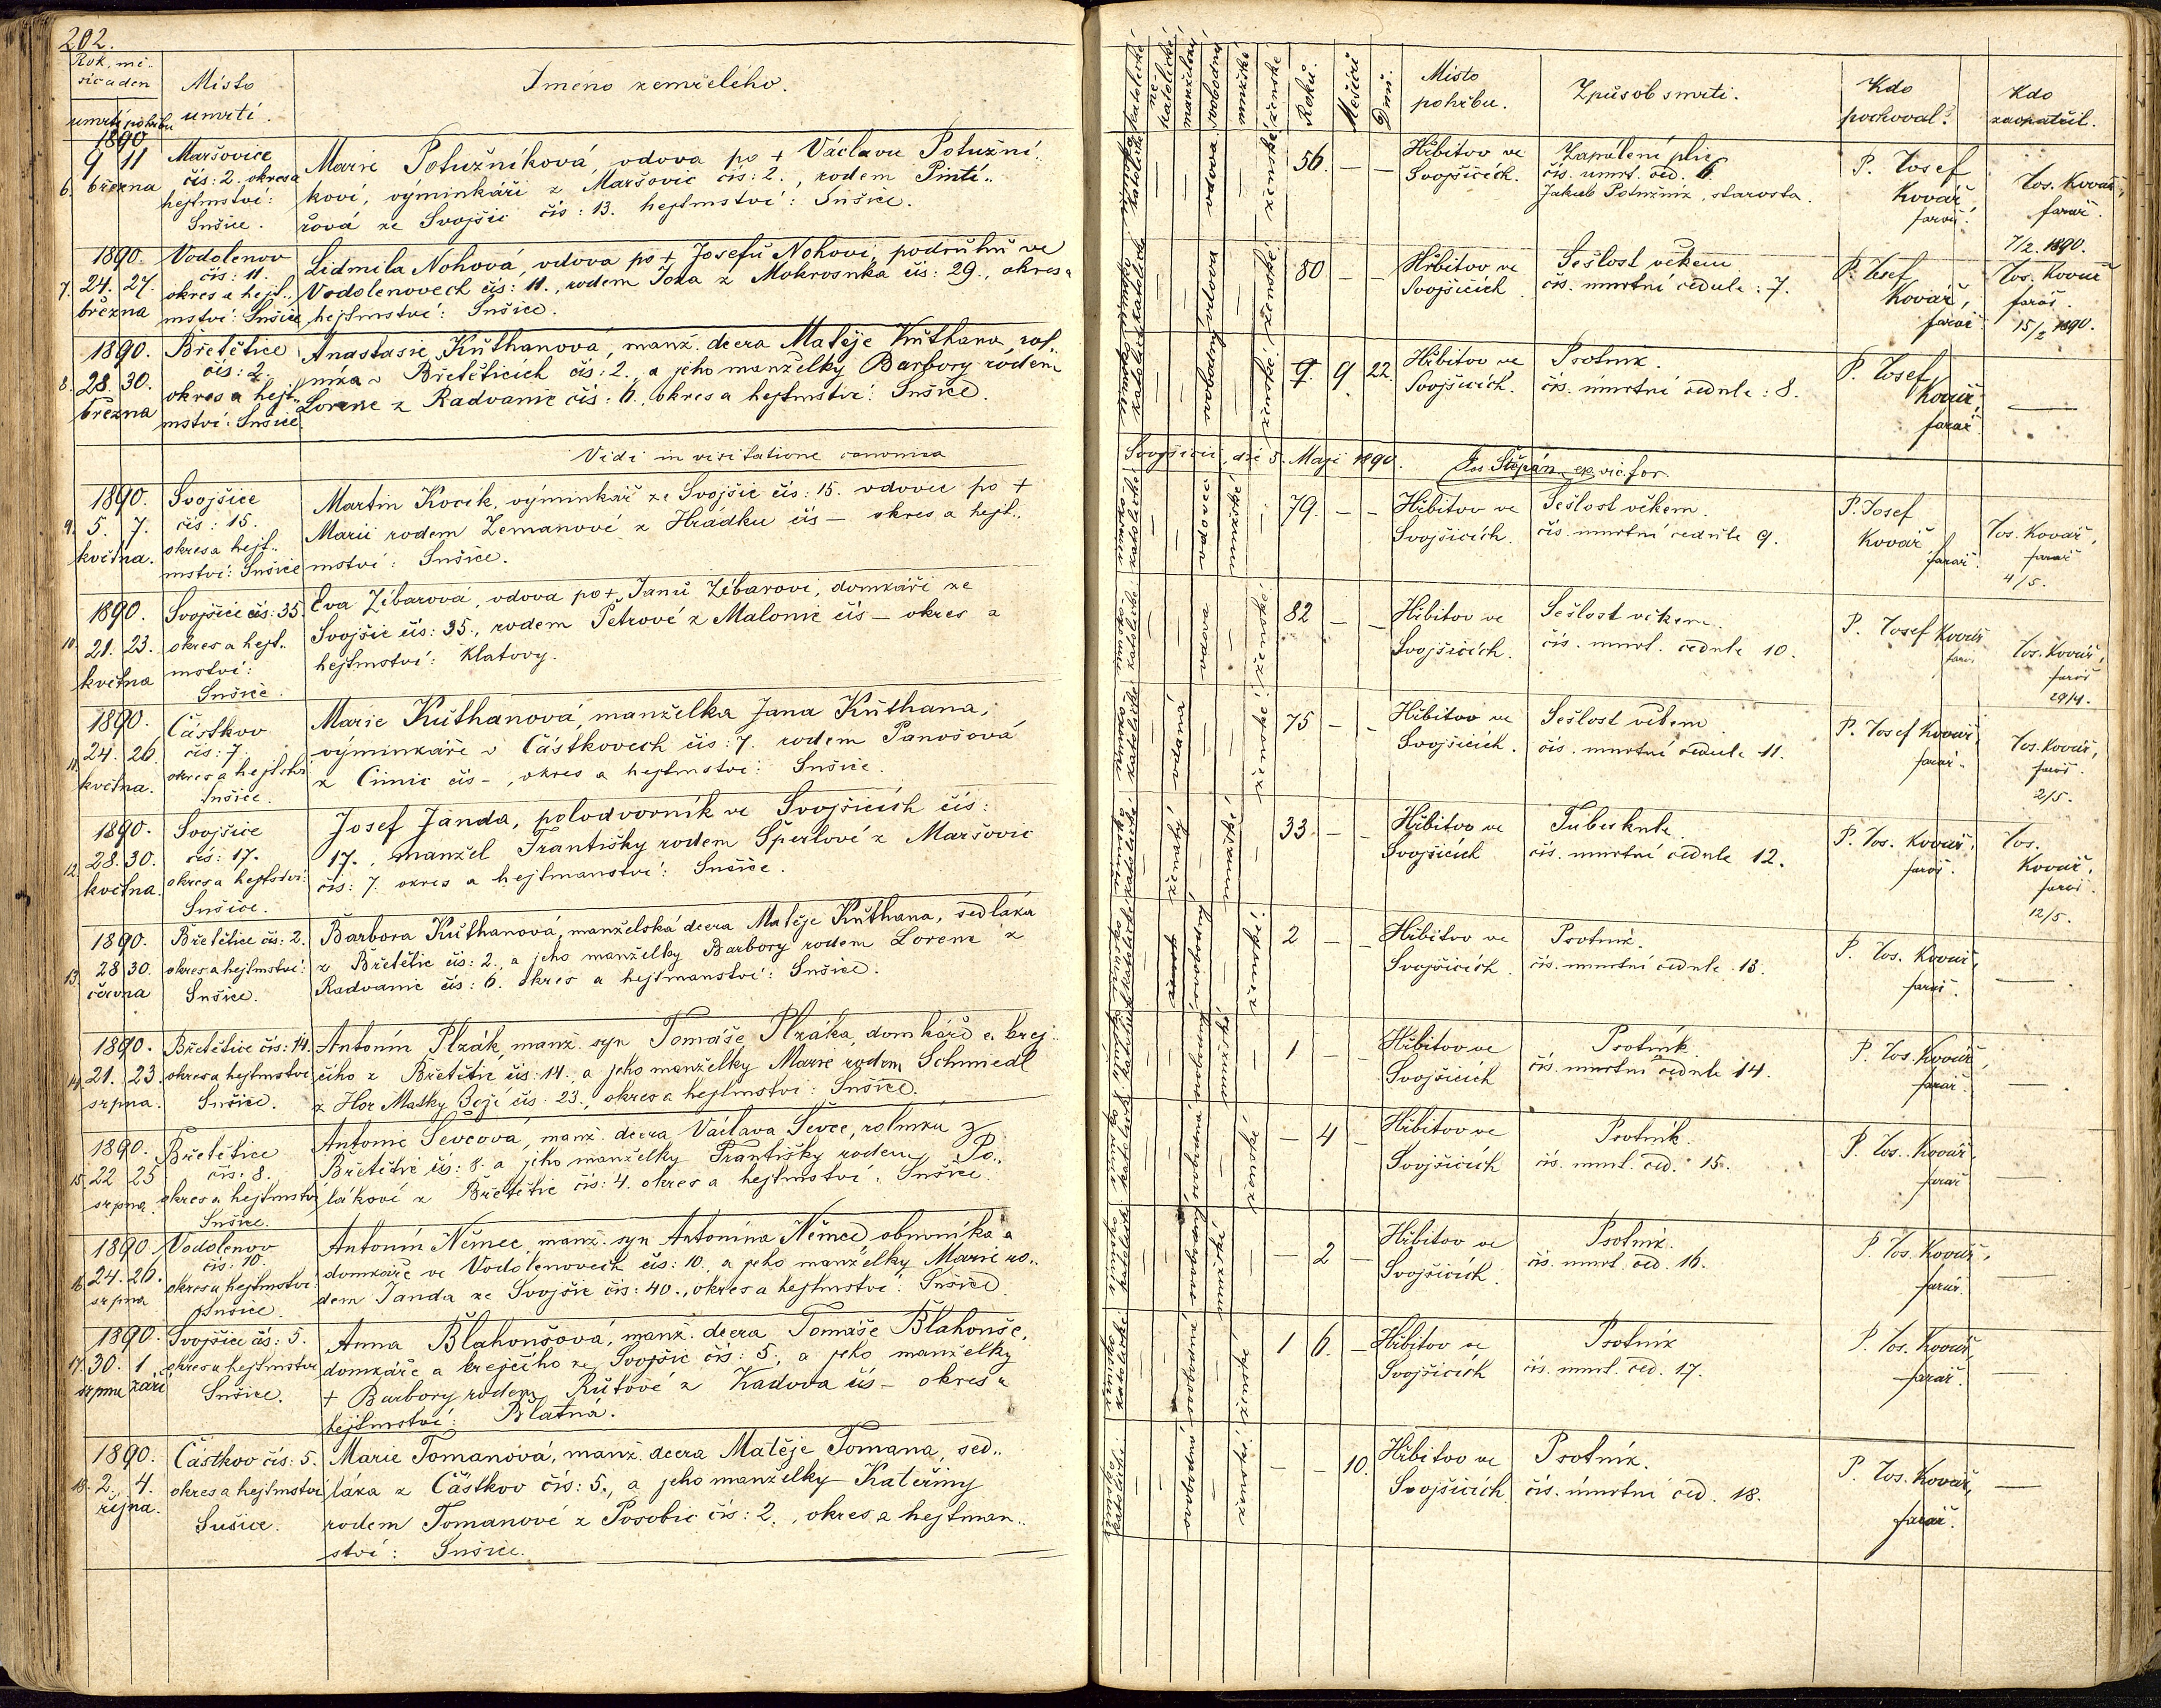 202.
Rok, mě-
síc a den
úmrtí pohřbu
Místo
úmrtí.
Jméno zemřelého.
1890
6. 9 11
března
Maršovice
čís: 2. okres a
hejtmství:
Sušice.
Marie Potužníková, vdova po + Václavu Potužní-
kovi, výminkáři z Maršovic čís: 2., rodem
řová ze Svojšic čís: 13. hejtmství: Sušice.
1890.
7. 24. 27.
března
Vodolenov
čís: 11.
okres a hejt-
mství: Sušice
Lidmila Nohová, vdova po + Josefu Nohovi, podruhu ve
Vodolenovech čís: 11., rodem z Mokrosuka čís: 29., okres a
hejtmství: Sušice.
1890.
8. 28. 30.
března
Břetětice
čís: 2.
okres a hejt-
mství: Sušice
Anastasie Kůthanová, manž. dcera Matěje Kůthana, rol-
níka v Břetěticích čís: 2., a jeho manželky Barbory rodem
Lorenc z Radvanic čís: 6., okres a hejtmství: Sušice.
Vidi in visitatione canonica
1890.
9. 5. 7.
května.
Svojšice
čís: 15.
okres a hejt-
mství: Sušice
Martin Kocík, výminkář ze Svojšic čís: 15. vdovec po +
Marii rodem Zemanové z Hrádku čís — okres a hejt-
mství: Sušice.
1890.
10. 21. 23.
května
Svojšice čís: 35.
okres a hejt-
mství:
Sušice.
Eva Zíbarová, vdova po + Janu Zíbarovi, domkáři ze
Svojšic čís: 35., rodem Petrové z Malonic čís — okres a
hejtmství: Klatovy.
1890.
11. 24. 26.
května.
Částkov
čís: 7.
okres a hejtství
Sušice.
Marie Kůthanová, manželka Jana Kůthana,
výminkáře v Částkovech čís: 7. rodem Panošová
z Čímic čís —, okres a hejtmství: Sušice.
1890.
12. 28. 30.
května.
Svojšice
čís: 17.
okres a hejtství:
Sušice.
Josef Janda, polodvorník ve Svojšicích čís:
17., manžel Františky rodem Šperlové z Maršovic
čís: 7. okres a hejtmanství: Sušice.
1890.
13. 28 30.
června
Břetětice čís: 2.
okres a hejtmství:
Sušice.
Barbora Kůthanová, manželská dcera Matěje Kůthana, sedláka
z Břetětic čís: 2., a jeho manželky Barbory rodem Lorenc z
Radvanic čís: 6. okres a hejtmanství: Sušice.
1890.
14. 21. 23
srpna.
Břetětice čís: 14.
okres a hejtmství
Sušice.
Antonín Plzák, manž. syn Tomáše Plzáka, domkáře a krej-
čího z Břetětic čís: 14., a jeho manželky Marie rodem Schmiedl
z Hor Matky Boží čís: 23., okres a hejtmství: Sušice.
1890.
15. 22 25
srpna.
Břetětice
čís: 8.
okres a hejtmství
Sušice.
Antonie Ševcová, manž. dcera Václava Ševce, rolníka z
Břetětic čís: 8. a jeho manželky Františky rodem Po-
lákové z Břetětic čís: 4. okres a hejtmství: Sušice.
1890
16. 24. 26.
srpna
Vodolenov
čís: 10.
okres a hejtmství:
Sušice.
Antonín Němec, manž. syn Antonína Němce, obuvníka a
domkáře ve Vodolenovech čís: 10., a jeho manželky Marie ro-
dem Janda ze Svojšic čís: 40., okres a hejtmství: Sušice.
1890.
17. 30. 1.
srpna září
Svojšice čís: 5.
okres a hejtmství
Sušice.
Anna Blahoušová, manž. dcera Tomáše Blahouše,
domkáře a krejčího ze Svojšic čís: 5., a jeho manželky
+ Barbory rodem Růtové z Kadova čís — okres a
hejtmství: Blatná.
1890.
18. 2. 4.
října.
Částkov čís: 5.
okres a hejtmství
Sušice.
Marie Tomanová, manž. dcera Matěje Tomana, sed-
láka z Částkov čís: 5., a jeho manželky Kateřiny
rodem Tomanové z Posobic čís: 2., okres a hejtman-
ství: Sušice.
katolické
ne katolické
manželský
svobodný
mužské
ženské
Roků.
Měsíců
Dnů.
Místo
pohřbu.
Způsob smrti.
Kdo
pochoval?
Kdo
zaopatřil.
katolické
vdova
ženské
56. — —
Hřbitov ve
Svojšicích.
Zapálení plic
čís. úmrt. ced. 6.
Jakub Potužník, starosta.
P. Josef
Kovář,
farář.
Jos. Kovář,
farář.
7/2. 1890.
katolické
vdova
ženské
80 — —
Hřbitov ve
Svojšicích.
Sešlost věkem
čís. úmrtní cedule: 7.
P. Josef
Kovář,
farář
Jos. Kovář
farář.
15/2 1890.
katolické
ženské
9 22.
Hřbitov ve
Svojšicích.
Psotník.
čís. úmrtní cedule: 8.
P. Josef
Kovář,
farář.
—
Svojšicii, die 5. Maji 1890. Jos Štěpán, vic. for.
katolické
vdovec
mužské
79. — —
Hřbitov ve
Svojšicích.
Sešlost věkem.
čís. úmrtní cedule 9.
P. Josef
Kovář
farář.
Jos. Kovář,
farář
4/5.
katolické
vdova
ženské
82 — —
Hřbitov ve
Svojšicích.
Sešlost věkem.
čís. úmrt. cedule 10.
P. Josef Kovář
farář
Jos. Kovář,
farář
29/4.
katolické
vdaná
ženské
75 — —
Hřbitov ve
Svojšicích.
Sešlost věkem
čís. úmrtní cedule 11.
P. Josef Kovář,
farář.
Jos. Kovář,
farář.
2/5.
katolické
ženatý
mužské
33. — —
Hřbitov ve
Svojšicích
Tuberkule.
čís. úmrtní cedule 12.
P. Jos. Kovář,
farář.
Jos.
Kovář,
farář.
12/5.
katolické
svobodná
ženské
2 — —
Hřbitov ve
Svojšicích.
Psotník.
čís. úmrtní cedule 13.
P. Jos. Kovář,
farář.
—
katolické
svobodný
mužské
1 — —
Hřbitov ve
Svojšicích
Psotník
čís. úmrtní cedule 14.
P. Jos. Kovář,
farář.
—
katolické
svobodná
ženské
— 4 —
Hřbitov ve
Svojšicích
Psotník.
čís. úmrt. ced. 15.
P. Jos. Kovář,
farář
—
katolické
svobodný
mužské
— 2 —
Hřbitov ve
Svojšicích.
Psotník.
čís. úmrt. ced. 16.
P. Jos. Kovář,
farář.
—
katolické
svobodná
ženské
1 6. —
Hřbitov ve
Svojšicích
Psotník
čís. úmrt. ced. 17.
P. Jos. Kovář,
farář.
—
katolické
svobodná
ženské
— — 10.
Hřbitov ve
Svojšicích
Psotník.
čís. úmrtní ced. 18.
P. Jos. Kovář,
farář.
—